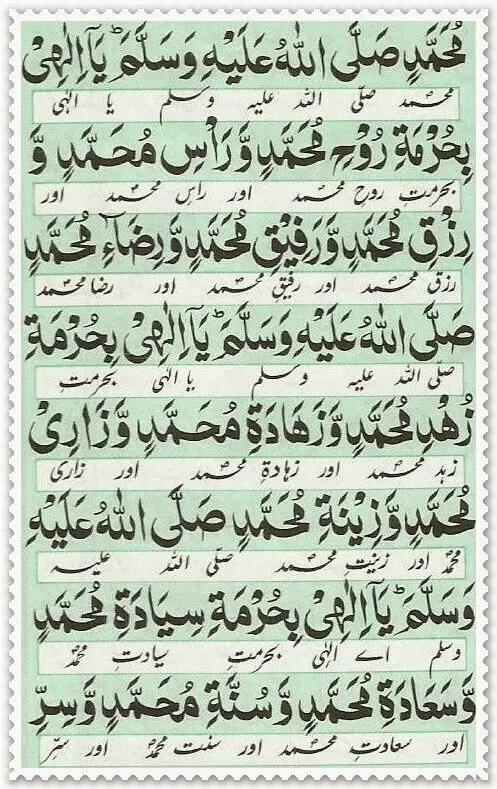 مُحَمَّدٍ صَلَّى اللهُ عَلَيْهِ وَسَلَّمَ ؕ يَآ اِلٰهِيْ
محمدؐ صلّی اللہ علیہ وسلم یا الٰہی
بِحُرْمَةِ رُوْحِ مُحَمَّدٍ وَّرَأْسِ مُحَمَّدٍ وَّ
بحرمت روحِ محمدؐ اور راسِ محمدؐ اور
رِزْقِ مُحَمَّدٍ وَّرَفِيْقِ مُحَمَّدٍ وَّرِضَآءِ مُحَمَّدٍ
رزقِ محمدؐ اور رفیقِ محمدؐ اور رضا محمدؐ
صَلَّى اللهُ عَلَيْهِ وَسَلَّمَ ؕ يَآ اِلٰهِيْ بِحُرْمَةِ
صلّی اللہ علیہ وسلم یا الٰہی بحرمتِ
زُهْدِ مُحَمَّدٍ وَّزَهَادَةِ مُحَمَّدٍ وَّزَارِيْ
زہد محمدؐ اور زہادۃِ محمدؐ اور زاری
مُحَمَّدٍ وَّزِيْنَةِ مُحَمَّدٍ صَلَّى اللهُ عَلَيْهِ
محمدؐ اور زینتِ محمدؐ صلّی اللہ علیہ
وَسَلَّمَ ؕ يَآ اِلٰهِيْ بِحُرْمَةِ سِيَادَةِ مُحَمَّدٍ
وسلم اے الٰہی بحرمتِ سیادتِ محمدؐ
وَّسَعَادَةِ مُحَمَّدٍ وَّسُنَّةِ مُحَمَّدٍ وَّسِرِّ
اور سعادتِ محمدؐ اور سنت محمدؐ اور سرِّ